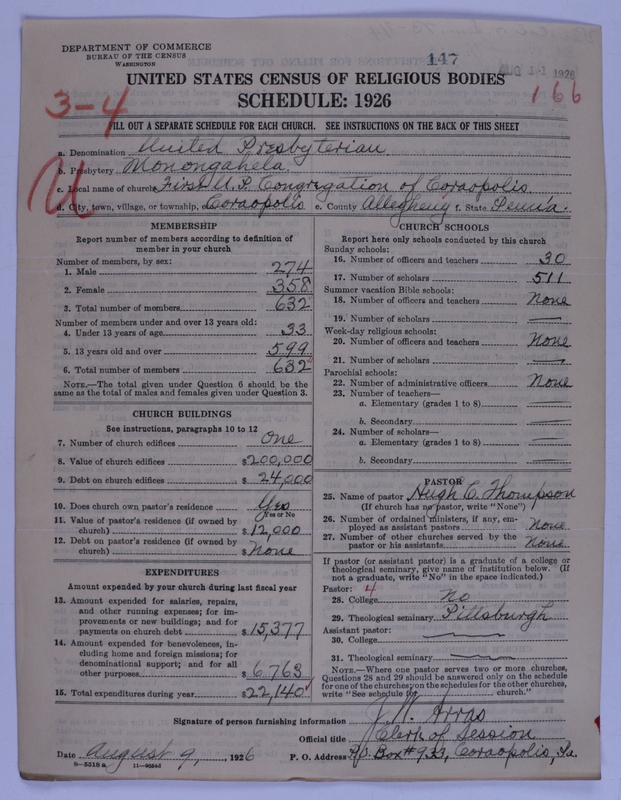 DEPARTMENT OF COMMERCE
BUREAU OF THE CENSUS
WASHINGTON
147
1926
UNITED STATES CENSUS OF RELIGIOUS BODIES
SCHEDULE: 1926
3-4
166
FILL OUT A SEPARATE SCHEDULE FOR EACH CHURCH. SEE INSTRUCTIONS ON THE BACK OF THIS SHEET
a. Denomination United Presbyterian
b. Presbytery Monongahela
c. Local name of church First U. P. Congregation of Coraopolis.
d. City, town, village, or township, Coraopolis e. County Allegheny f. State Penn'a.
MEMBERSHIP
Report number of members according to definition of
member in your church
Number of members, by sex:
1. Male 274
2. Female 358
3. Total number of members 632
Number of members under and over 13 years old:
4. Under 13 years of age 33
5. 13 years old and over 599
6. Total number of members 632
NOTE.—The total given under Question 6 should be
same as the total of males and females given under Question 3.
CHURCH BUILDINGS
See instructions, paragraphs 10 to 12
7. Number of church edifices One
8. Value of church edifices $200,000
9. Debt on church edifices $ 24,000
10. Does church own pastor's residence Yes
Yes or No
11. Value of pastor's residence (if owned by
church) $12,000
12. Debt on pastor's residence (if owned by
church) $ None
EXPENDITURES
Amount expended by your church during last fiscal year
13. Amount expended for salaries, repairs,
and other running expenses; for im-
provements or new buildings; and for
payments on church debt $15,377
14. Amount expended for benevolences, in-
cluding home and foreign missions; for
denominational support; and for all
other purposes $ 6763
15. Total expenditures during year $22,140
CHURCH SCHOOLS
Report here only schools conducted by this church
Sunday schools:
16. Number of officers and teachers 30
17. Number of scholars 511
Summer vacation Bible schools:
18. Number of officers and teachers None
19. Number of scholars —
Week-day religious schools:
20. Number of officers and teachers None
21. Number of scholars —
Parochial schools:
22. Number of administrative officers None
23. Number of teachers—
a. Elementary (grades 1 to 8) —
b. Secondary —
24. Number of scholars—
a. Elementary (grades 1 to 8) —
b. Secondary —
PASTOR
25. Name of pastor Hugh C. Thompson
(If church has no pastor, write "None")
26. Number of ordained ministers, if any, em-
ployed as assistant pastors None
27. Number of other churches served by the
pastor or his assistants None
If pastor (or assistant pastor) is a graduate of a college or
theological seminary, give name of institution below. (If
not a graduate, write "No" in the space indicated.)
Pastor: 4
28. College No
29. Theological seminary Pittsburgh
Assistant pastor:
30. College —
31. Theological seminary —
NOTE.—Where one pastor serves two or more churches,
Questions 28 and 29 should be answered only on the schedule
for one of the churches; on the schedules for the other churches,
write "See schedule for church."
Signature of person furnishing information J. W. Arras
Official title Clerk of Session
Date August 9, 1926 P. O. Address P.O. Box # 933, Coraopolis, Pa.
8—5518 a